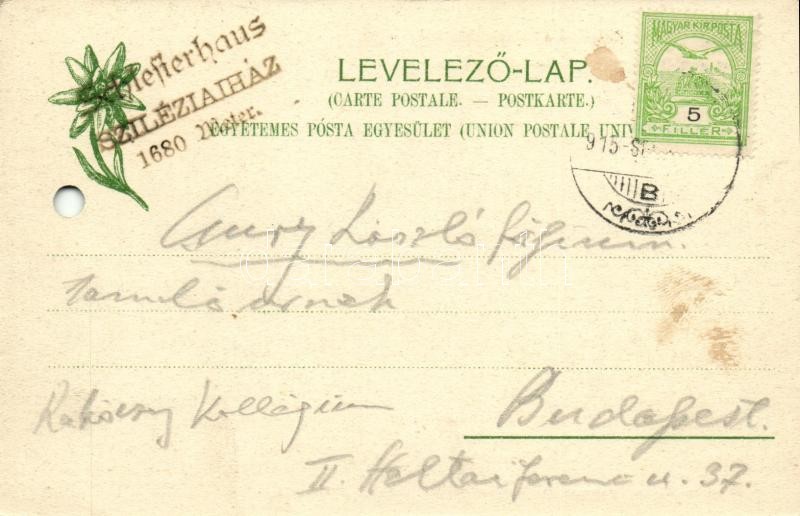 Schlesierhaus
SZILÉZIAIHÁZ
1680 Meter.
LEVELEZŐ-LAP.
(CARTE POSTALE. — POSTKARTE.)
EGYETEMES PÓSTA EGYESÜLET (UNION POSTALE UNIV
MAGYAR KIR. POSTA
5
FILLÉR
915
B
László
tanuló úrnak
Rákóczy Kollégium
Budapest.
II. Heltai Ferenc u. 37.